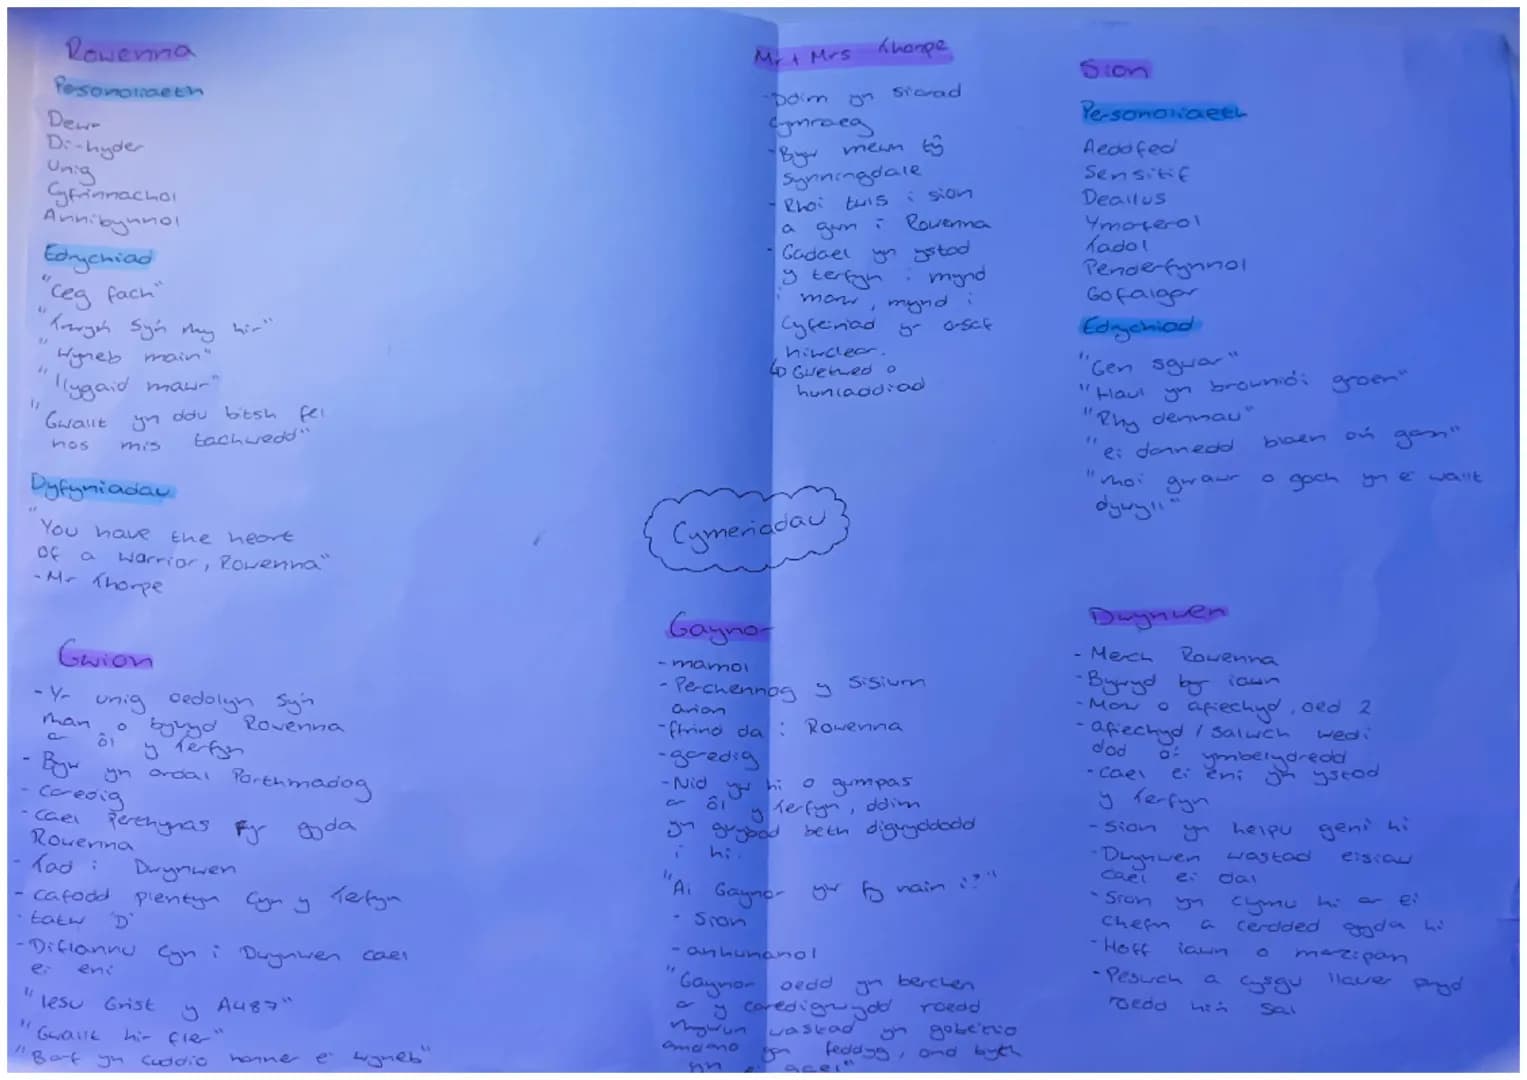 Rowenna
Personoliaeth
Dewr
Di-hyder
Unig
Cyfrinnachol
Annibynnol
Edrychiad
"Ceg fach"
"Trwyn sy'n rhy hir"
"Wyneb main"
"llygaid mawr"
"Gwallt yn ddu bitsh fel
nos mis tachwedd"
Dyfyniadau
"You have the heart
of a warrior, Rowenna"
- Mr Thorpe
Mr + Mrs Thorpe
- Ddim yn siarad
Cymraeg
- Byw mewn tŷ
Synningdale
- Rhoi twls i sion
a gwn i Rowenna
- Gadael yn ystod
y terfyn i mynd
i marw, mynd i
cyfeiriad yr orsaf
niwclear.
↳ Gweithred o
hunladdiad
Sion
Personoliaeth
Aeddfed
Sensitif
Deallus
Ymarferol
Tadol
Penderfynnol
Gofalgar
Edrychiad
"Gen sgwar"
"Haul yn brownio'i groen"
"Rhy dennau"
"ei dannedd blaen o'n gam"
"rhoi gwawr o goch yn ei wallt
dywyll"
Cymeriadau
Gwion
- Yr unig oedolyn sy'n
rhan o bywyd Rowenna
ar ôl y Terfyn
- Byw yn ardal Porthmadog
- Caredig
- cael perthynas gyda
Rowenna
- Tad i Dwynwen
- cafodd plentyn cyn y Terfyn
- tatw 'D'
- Diflannu cyn i Dwynwen cael
ei eni
"Iesu Grist y A487"
"Gwallt hir fler"
"Barf yn cuddio hanner ei wyneb"
Gaynor
- mamol
- Perchennog y Sisiwrn
arian
- ffrind da i Rowenna
- garedig
- Nid yw hi o gwmpas
ar ôl y Terfyn, ddim
yn gwybod beth digwyddodd
i hi.
"Ai Gaynor yw fy nain i?"
- Sion
- anhunanol
"Gaynor oedd yn berchen
ar y caredigrwydd roedd
rhywun wastad yn gobeithio
amdano gan feddyg, ond byth
yn ei gael"
Dwynwen
- Merch Rowenna
- Bywyd byr iawn
- Marw o afiechyd, oed 2
- afiechyd / salwch wedi
dod o'r ymbelydredd
- cael ei eni yn ystod
y Terfyn
- Sion yn helpu geni hi
- Dwynwen wastad eisiau
cael ei dal
- Sion yn clymu hi ar ei
chefn a cerdded gyda hi
- Hoff iawn o marzipan
- Peswch a cysgu llawer pryd
roedd hi'n sal